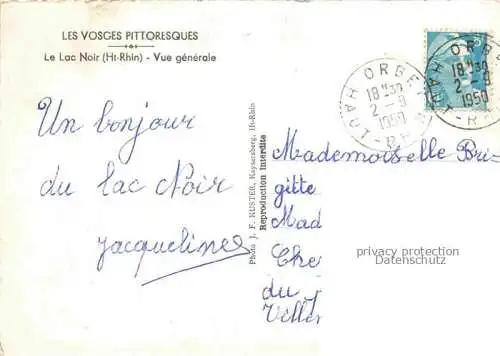 LES VOSGES PITTORESQUES
Le Lac Noir (Ht-Rhin) - Vue générale
ORBEY
18H30
2-9
1950
HAUT-RHIN
ORBEY
18H30
2-9
1950
HAUT-RHIN
Un bonjour
du lac Noir
Jacqueline
Photo J. F. KUSTER, Kaysersberg, Ht-Rhin
Reproduction interdite
Mademoiselle Bri-
gitte
Mad
Che
du
Veller
privacy protection
Datenschutz